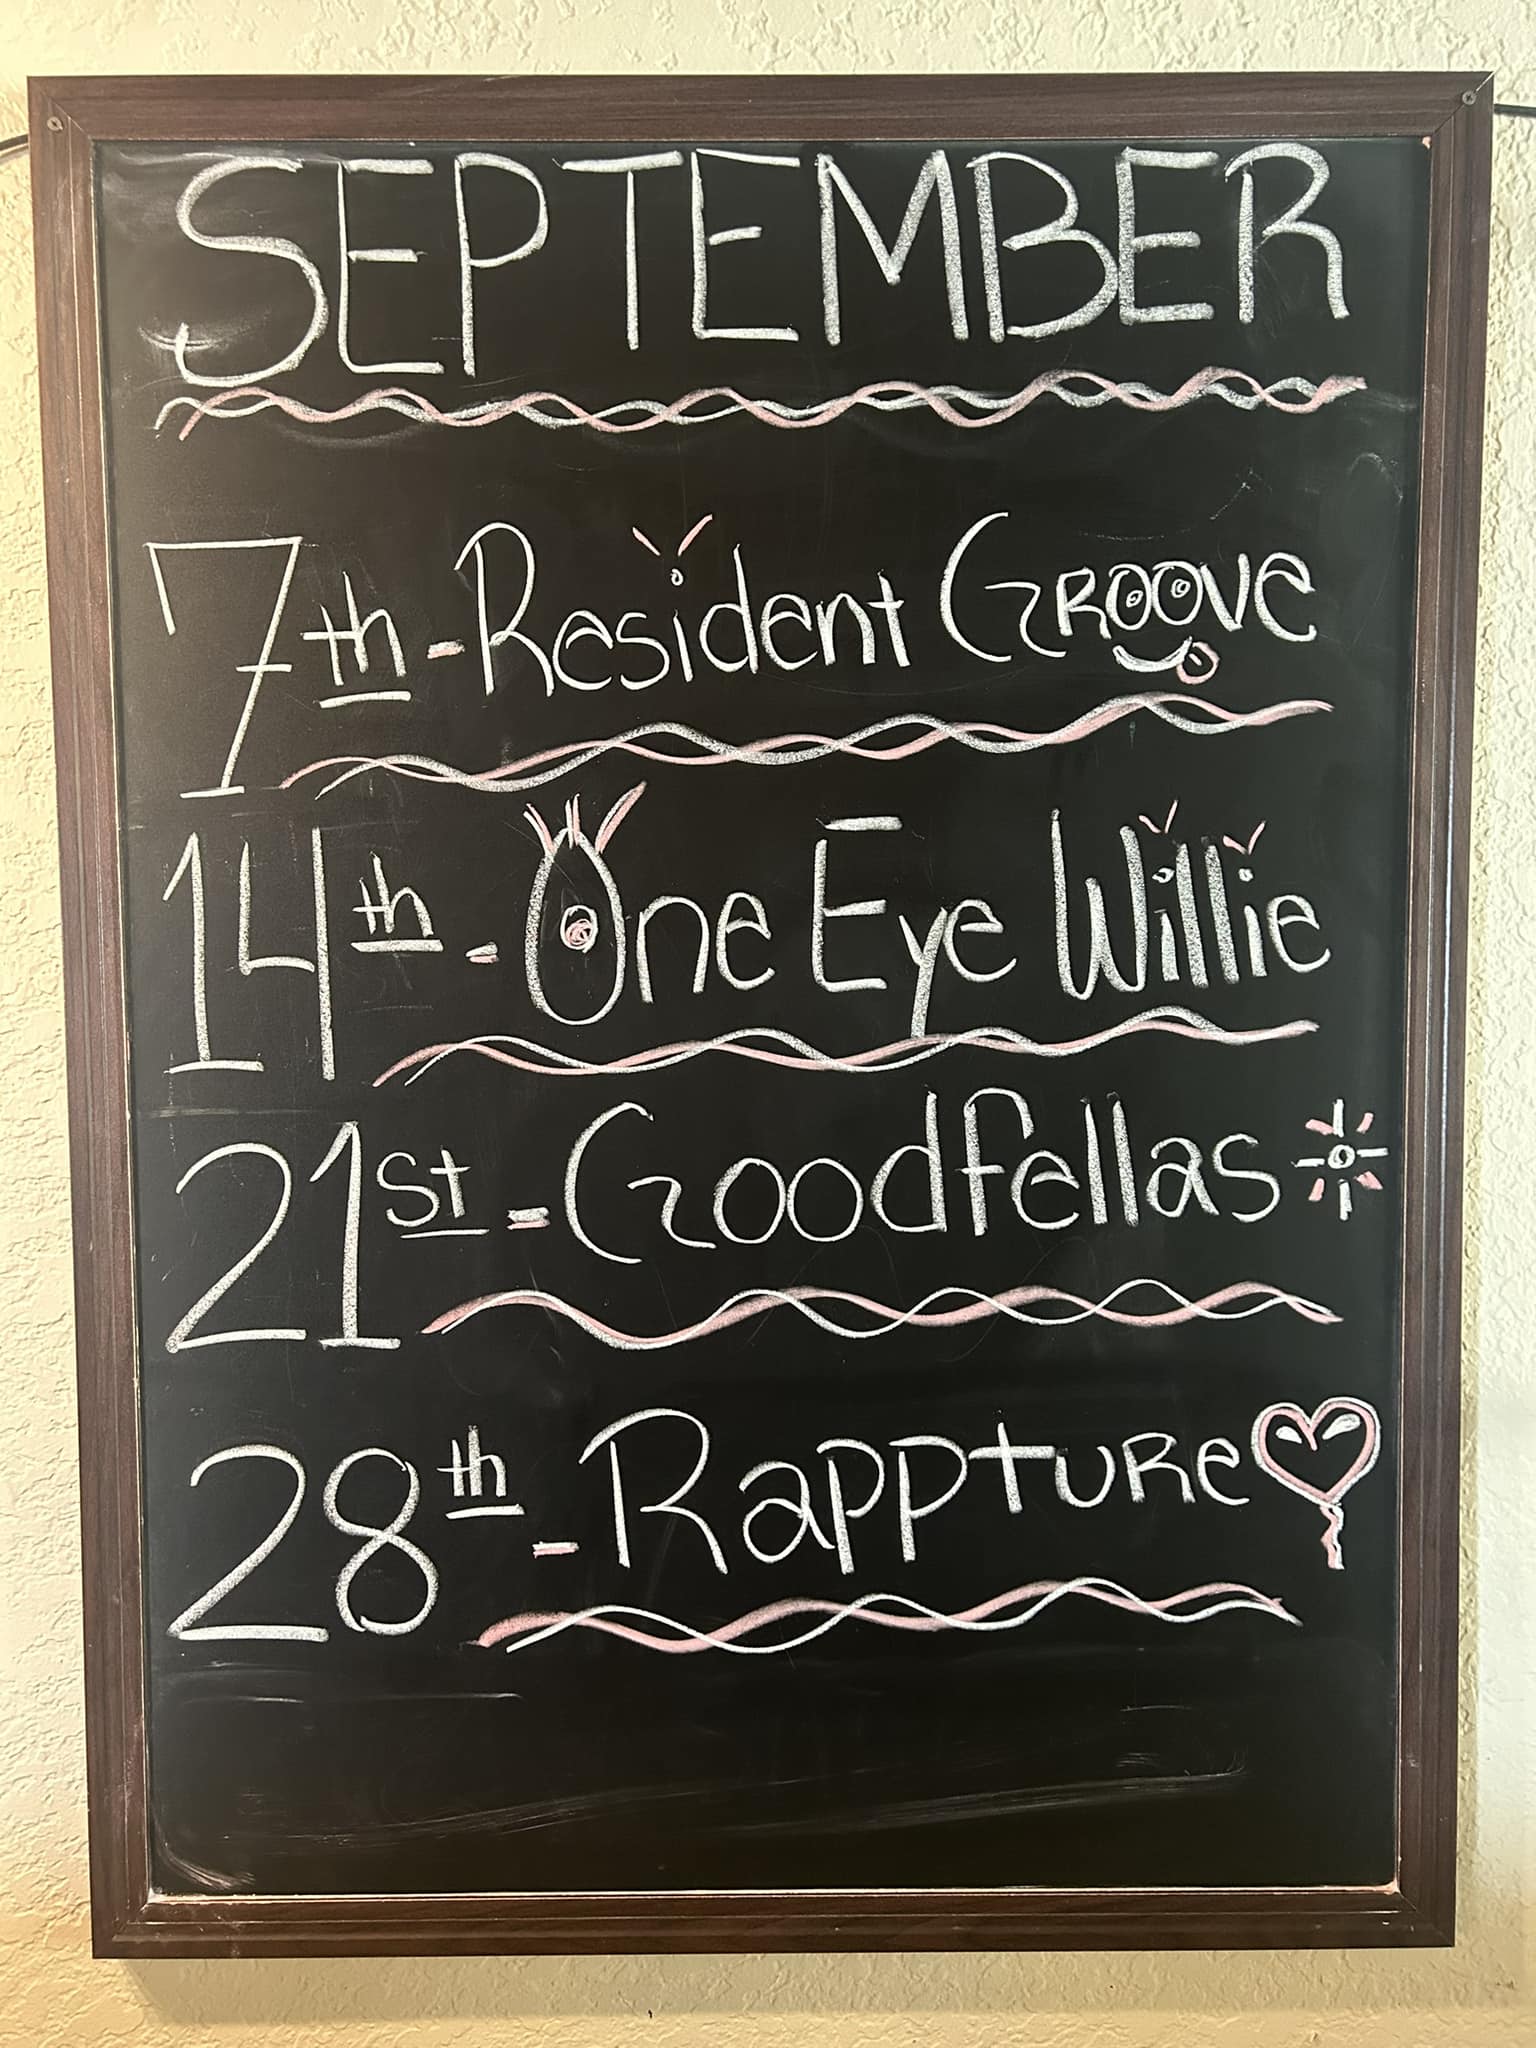 SEPTEMBER
7th - Resident GROOVE
14th - One Eye Willie
21st - Goodfellas
28th - RappTURe